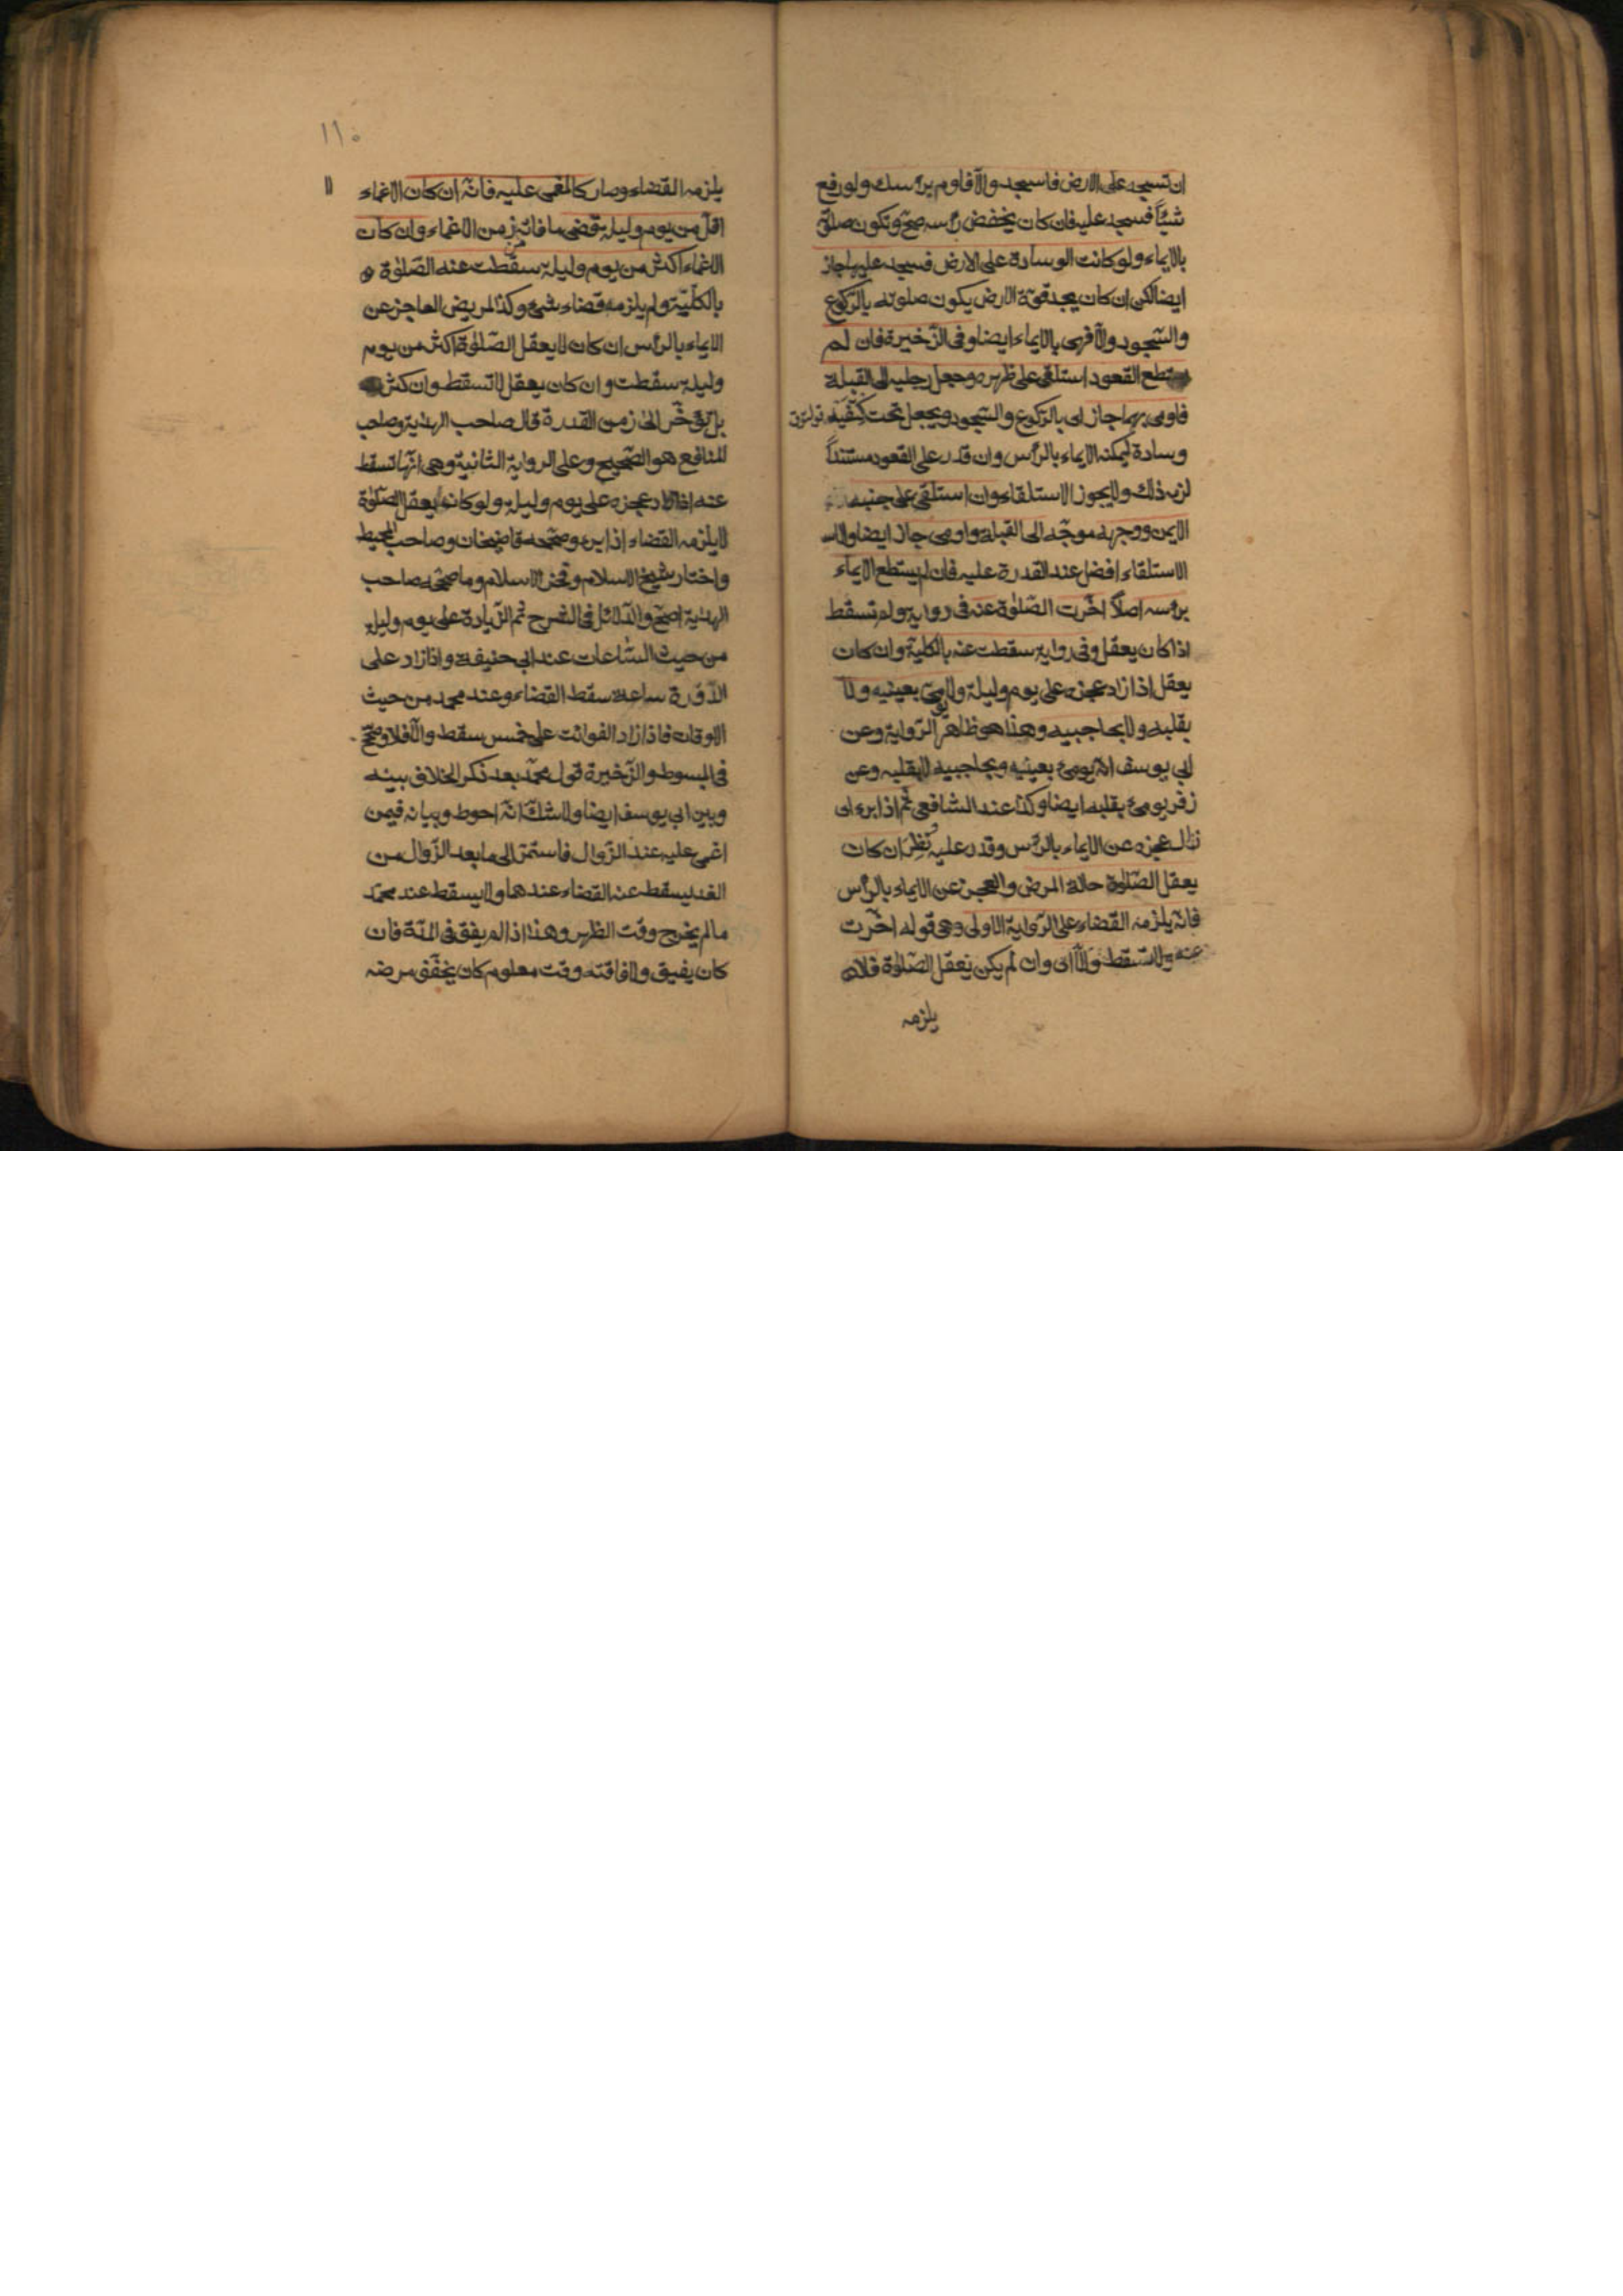 ان تسجد على الارض فاسجد والا فاوم برأسك ولو رفع
شيئاً فسجد عليه فان كان يخفض رأسه صح وتكون صلوته
بالايماء ولو كانت الوسادة على الارض فسجد عليها جاز
ايضا لكن ان كان يجد قوة الارض يكون صلوته بالركوع
والسجود والا فهى بالايماء ايضا وفى الذخيرة فان لم
يستطع القعود استلقى على ظهره وجعل رجليه الى القبلة
فاومى بهما جاز اى بالركوع والسجود ويجعل تحت كتفيه
وسادة ليمكنه الايماء بالرأس وان قدر على القعود مستنداً
لزمه ذلك ولا يجوز الاستلقاء وان استلقى على جنبه
الايمن ووجهه موجه الى القبلة واومى جاز ايضا والا
الاستلقاء افضل عند القدرة عليه فان لم يستطع الايماء
برأسه اصلاً اخرت الصلوة عنه فى رواية ولم تسقط
اذا كان يعقل وفى رواية سقطت عنه بالكلية وان كان
يعقل اذا زاد عجزه على يوم وليلة ولا يومئ بعينيه ولا
بقلبه ولا بحاجبيه وهذا هو ظاهر الرواية وعن
ابى يوسف انه يومئ بعينيه وبحاجبيه لا بقلبه وعن
زفر يومئ بقلبه ايضا وكذا عند الشافعى ثم اذا برء اى
زال عجزه عن الايماء بالرأس وقدر عليه نظر ان كان
يعقل الصلوة حالة المرض والعجز عن الايماء بالرأس
فانه يلزمه القضاء على الرواية الاولى وهى قوله اخرت
عنه ولا تسقط والا اى وان لم يكن يعقل الصلوة فلا
يلزمه
١١٠
يلزمه القضاء وصار كالمغمى عليه فانه ان كان الاغماء
اقل من يوم وليلة قضى ما فاته زمن الاغماء وان كان
الاغماء اكثر من يوم وليلة سقطت عنه الصلوة
بالكلية ولم يلزمه قضاء شئ وكذا المريض العاجز عن
الايماء بالرأس ان كان لا يعقل الصلوة اكثر من يوم
وليلة سقطت وان كان يعقل لا تسقط وان كثر
بل تؤخر الى زمن القدرة قال صاحب الهداية وصاحب
المنافع هو الصحيح وعلى الرواية الثانية وهى انها تسقط
عنه اذا زاد عجزه على يوم وليلة ولو كان يعقل الصلوة
لا يلزمه القضاء اذا برء وصححه قاضيخان وصاحب المحيط
واختار شيخ الاسلام وفخر الاسلام وما صححه صاحب
الهداية اصح والدلائل فى الشرح ثم الزيادة على يوم وليلة
من حيث الساعات عند ابى حنيفة واذا زاد على
الدورة ساعة سقط القضاء وعند محمد من حيث
الاوقات فاذا زاد الفوائت على خمس سقط والا فلا وصحح
فى المبسوط والذخيرة قول محمد بعد ذكر الخلاف بينه
وبين ابى يوسف ايضا ولا شك انه احوط وبيانه فيمن
اغمى عليه عند الزوال فاستمر الى ما بعد الزوال من
الغد يسقط عنه القضاء عندهما ولا يسقط عند محمد
ما لم يخرج وقت الظهر وهذا اذا لم يفق فى المدة فان
كان يفيق ولافاقته وقت معلوم كان يخفف مرضه